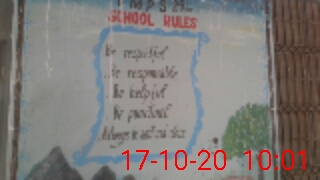 SCHOOL RULES
Be respectful
Be responsible
Be helpful
Be punctual
Always be
17-10-20 10:01